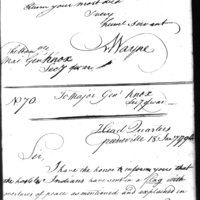 your most obt
Humel Servant
A. Wayne
The Honble
Maj Genl Knox
Secy of war
No 70. To Major Genl Knox
Secy of war
Head Quarters
Greeneville 18 Jany 1794
Sir
I have the honor to inform you that
the hostile Indians have sent in a flag with
overtures of peace as mentioned and explained in